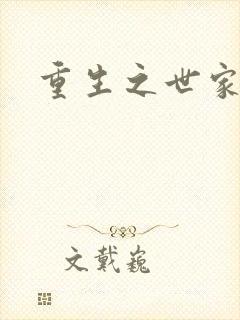 重生之世家
文戴巍